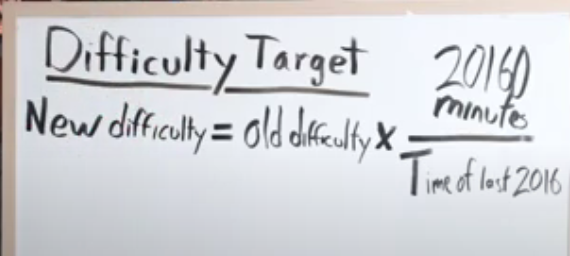 Difficulty Target
New difficulty = old difficulty x 20160 minutes
Time of last 2016